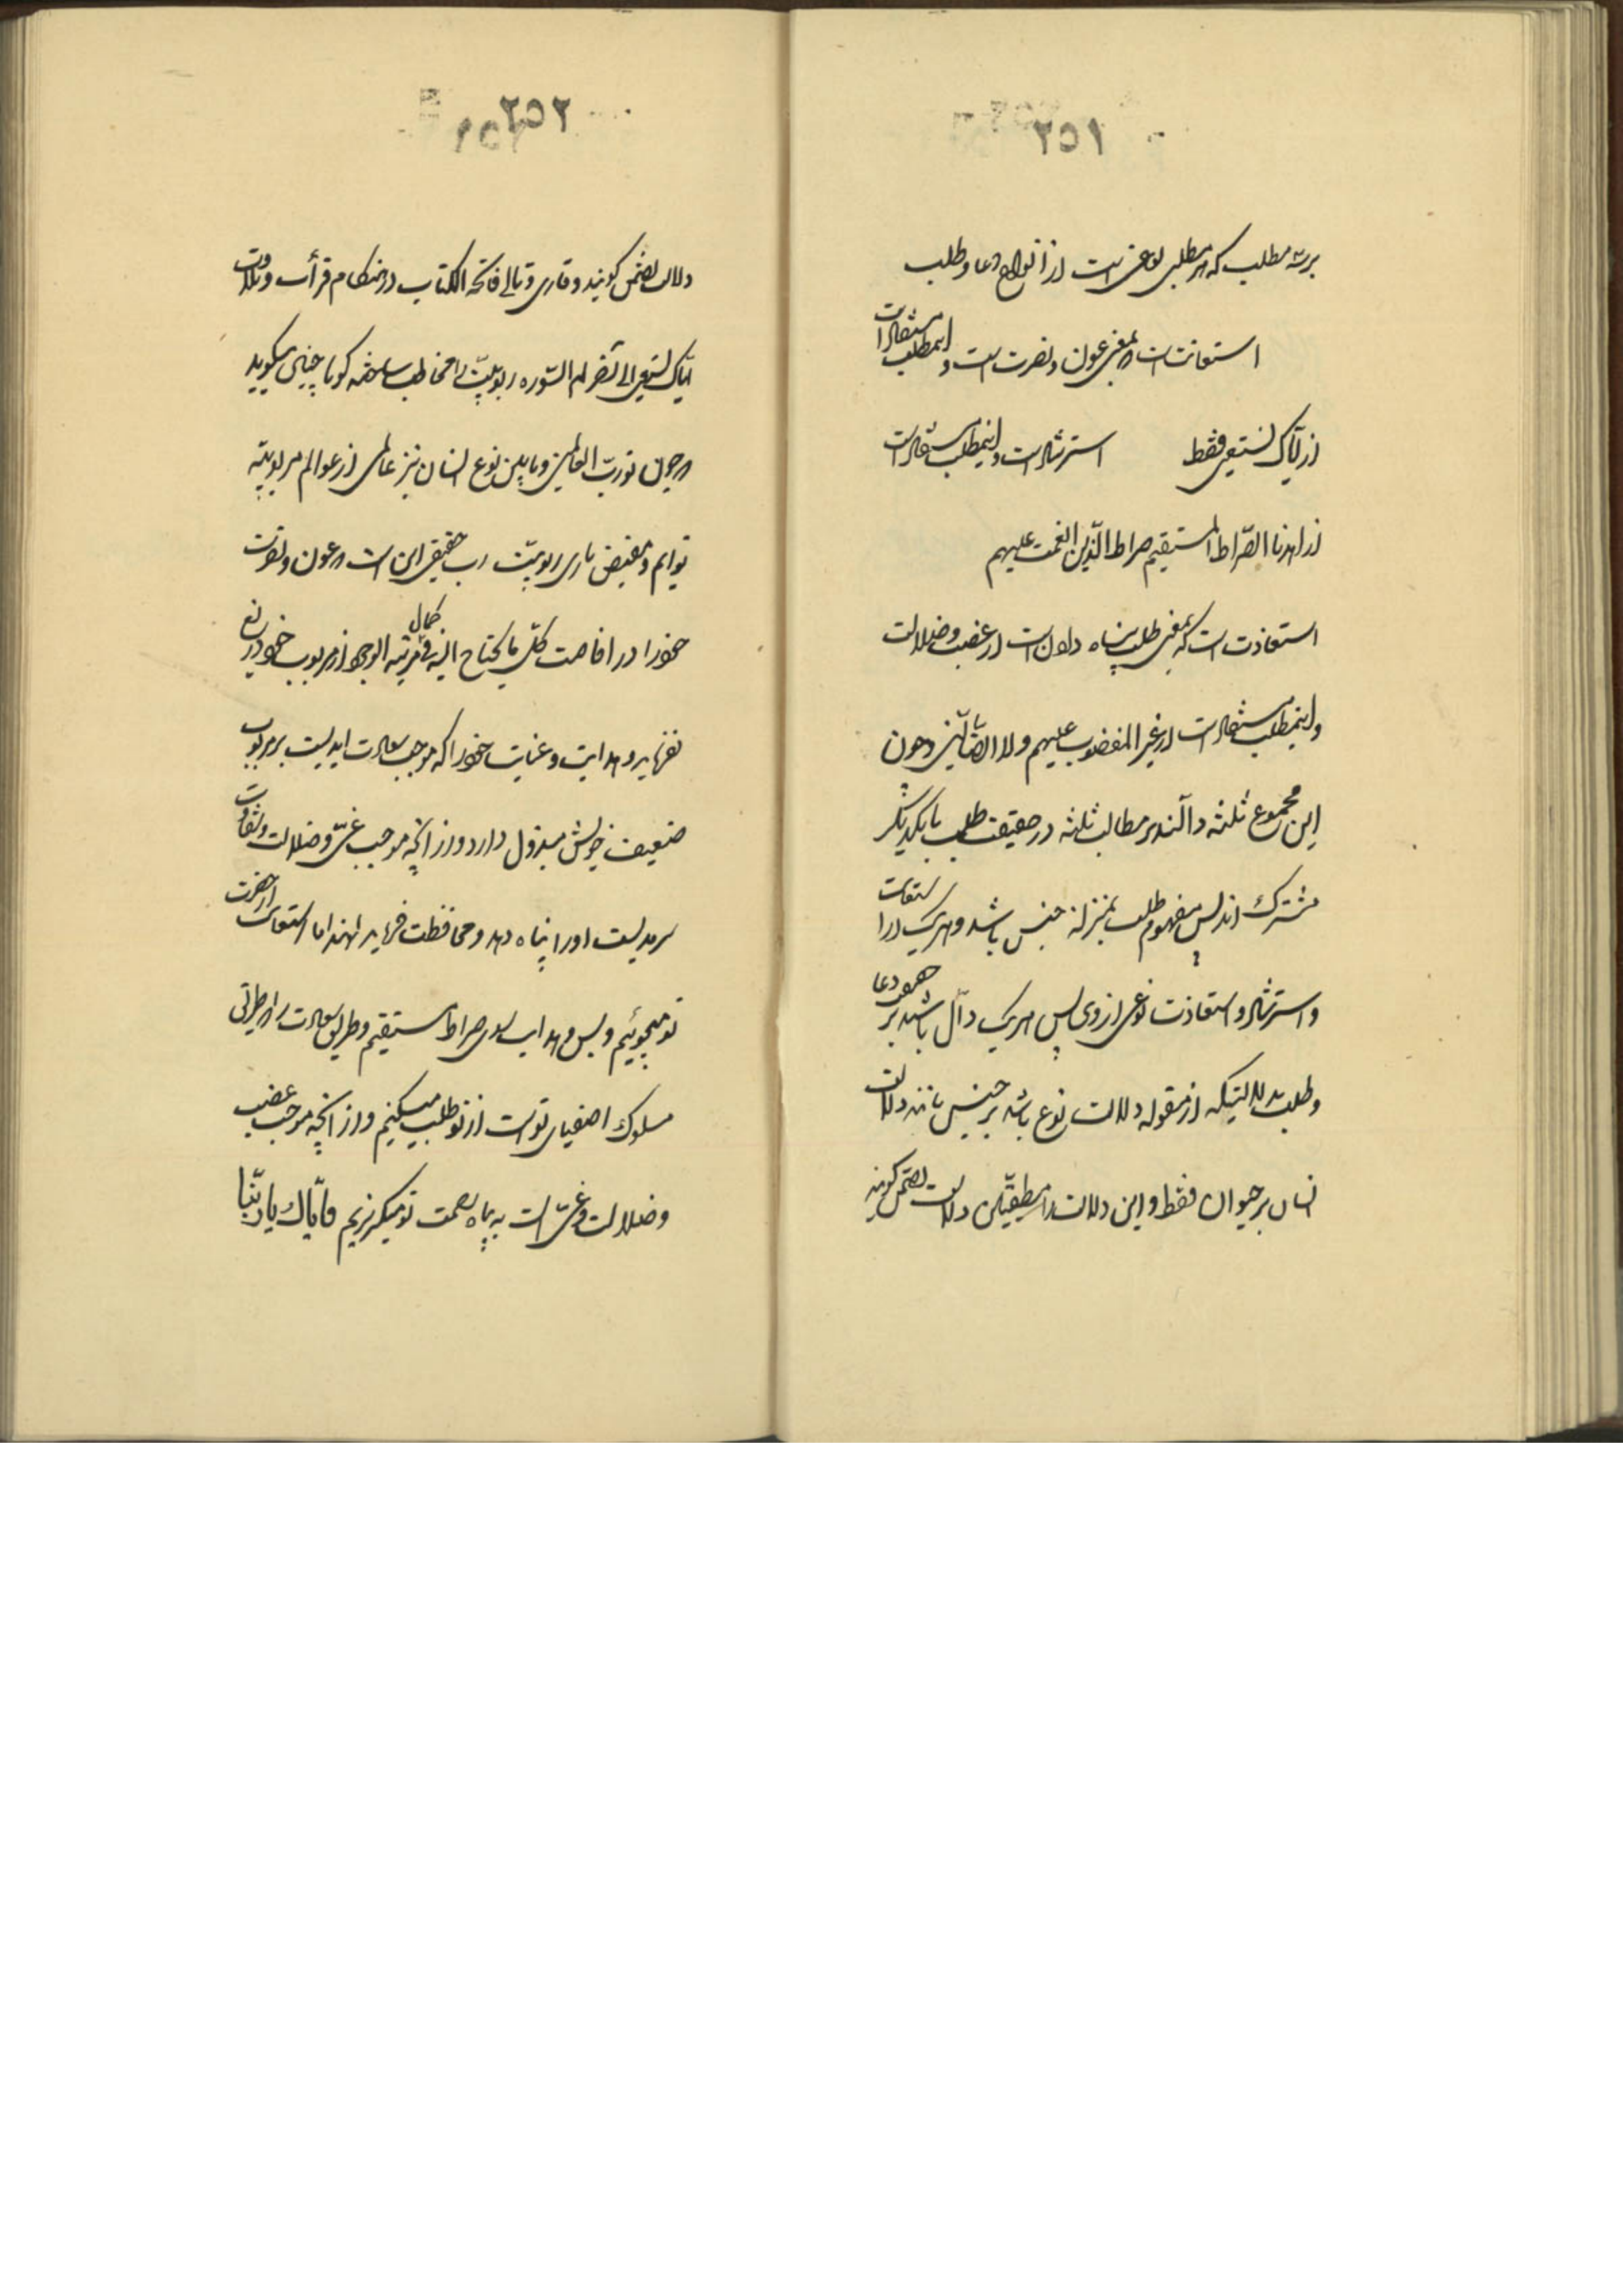 ۲۵۱
بر سه مطلب که هر مطلبی نوعی است از انواع دعا و طلب
استعانت است که بمعنی عون و نصرت است و اینمطلب مستفاد است
از ایاک نستعین فقط استرشاد است و اینمطلب مستفاد است
از اهدنا الصّراط المستقیم صراط الّذین انعمت علیهم
استعاذت است که بمعنی طلب پناه دادن است از غضب و ضلالت
و اینمطلب مستفاد است از غیر المغضوب علیهم ولا الضّالّین و چون
این مجموع ثلثه دالّند بر مطالب ثلثه در حقیقت طلب با یکدیگر
مشترک اند پس مفهوم طلب بمنزله جنس باشد و هر یک را استعانت
و استرشاد و استعاذت نوعی از وی پس هر یک دالّ باشند بر مفهوم دعا
و طلب بدلالتیکه از مقوله دلالت نوع باشد بر جنس مانند دلالت
انسان بر حیوان فقط و این دلالت را منطقیّین دلالت تضمّن گویند
۲۵۲
دلالت تضمّن گویند و قاری و تالی فاتحة الکتاب در هنگام قرأت و تلاوت
ایّاک نستعین الی آخر السّوره ربوبیّت را مخاطب ساخته گویا چنین میگوید
که چون تو ربّ العالمین و ما بین نوع انسان نیز عالمی از عوالم مربوبیّه
توایم و مقتضی ربوبیّت رب حقیقی این است که عون و نصرت
خود را در افاضت کلّ ما یحتاج الیه فی کمال مرتبه الوجود از مربوب خود دریغ
نفرماید و هدایت و عنایت خود را که موجب سعادت ابدیست بر مربوب
ضعیف خویش مبذول دارد و از آنچه موجب غیّ و ضلالت و شقاوت
سرمدیست او را پناه دهد و محافظت فرماید لهذا ما استعانت از حضرت
تو میجوئیم و بس و هدایت بسوی صراط مستقیم و طریق سعادت را که طریق
مسلوک اصفیای تو است از تو طلب میکنیم و از آنچه موجب غضب
و ضلالت و غیّ است به پناه رحمت تو میگریزیم فایّاک یا ربّنا